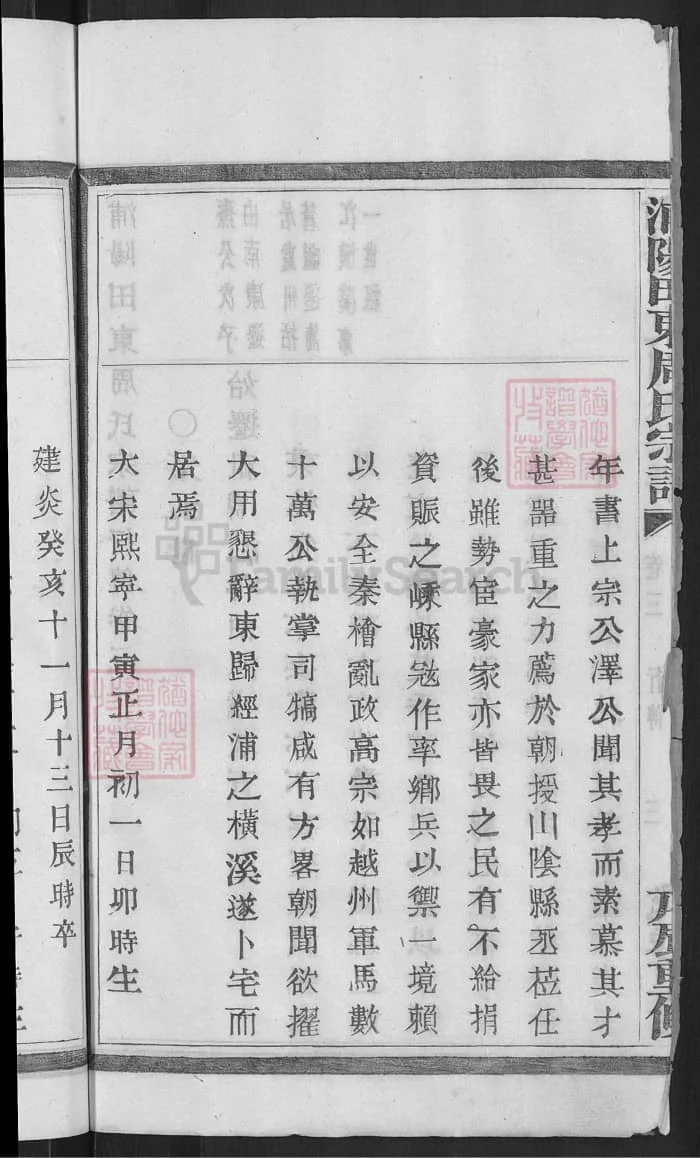 浦陽田東周氏宗譜
卷三
三
丙辰重修
年書上宗公澤公聞其孝而素慕其才
甚器重之力薦於朝授山陰縣丞莅任
後雖勢宦豪家亦皆畏之民有不給捐
資賑之嵊縣冦作率鄉兵以禦一境賴
以安全秦檜亂政高宗如越州軍馬數
十萬公執掌司犒咸有方畧朝聞欲擢
大用懇辭東歸經浦之橫溪遂卜宅而
居焉
大宋熙寧甲寅正月初一日卯時生
建炎癸亥十一月十三日辰時卒
FamilySearch